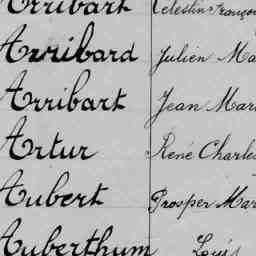 Arribart Célestin François
Arribard Julien Ma
Arribart Jean Mar
Artur René Charles
Aubert Prosper Mar
Auberthum Louis